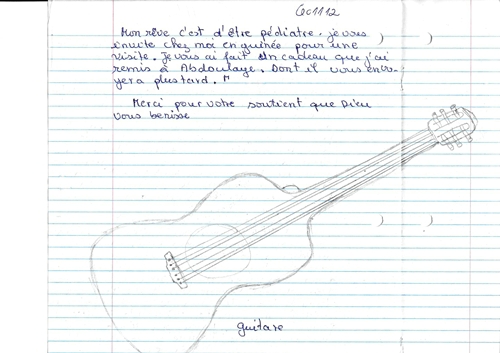 601112
Mon rêve c'est d'être pédiatre. je vous
invite chez moi en guinée pour une
visite. Je vous ai fait un cadeau que j'ai
remis à Abdoulaye. Dont il vous envo-
yera plustard. "
Merci pour votre soutient que Dieu
vous benisse
guitare